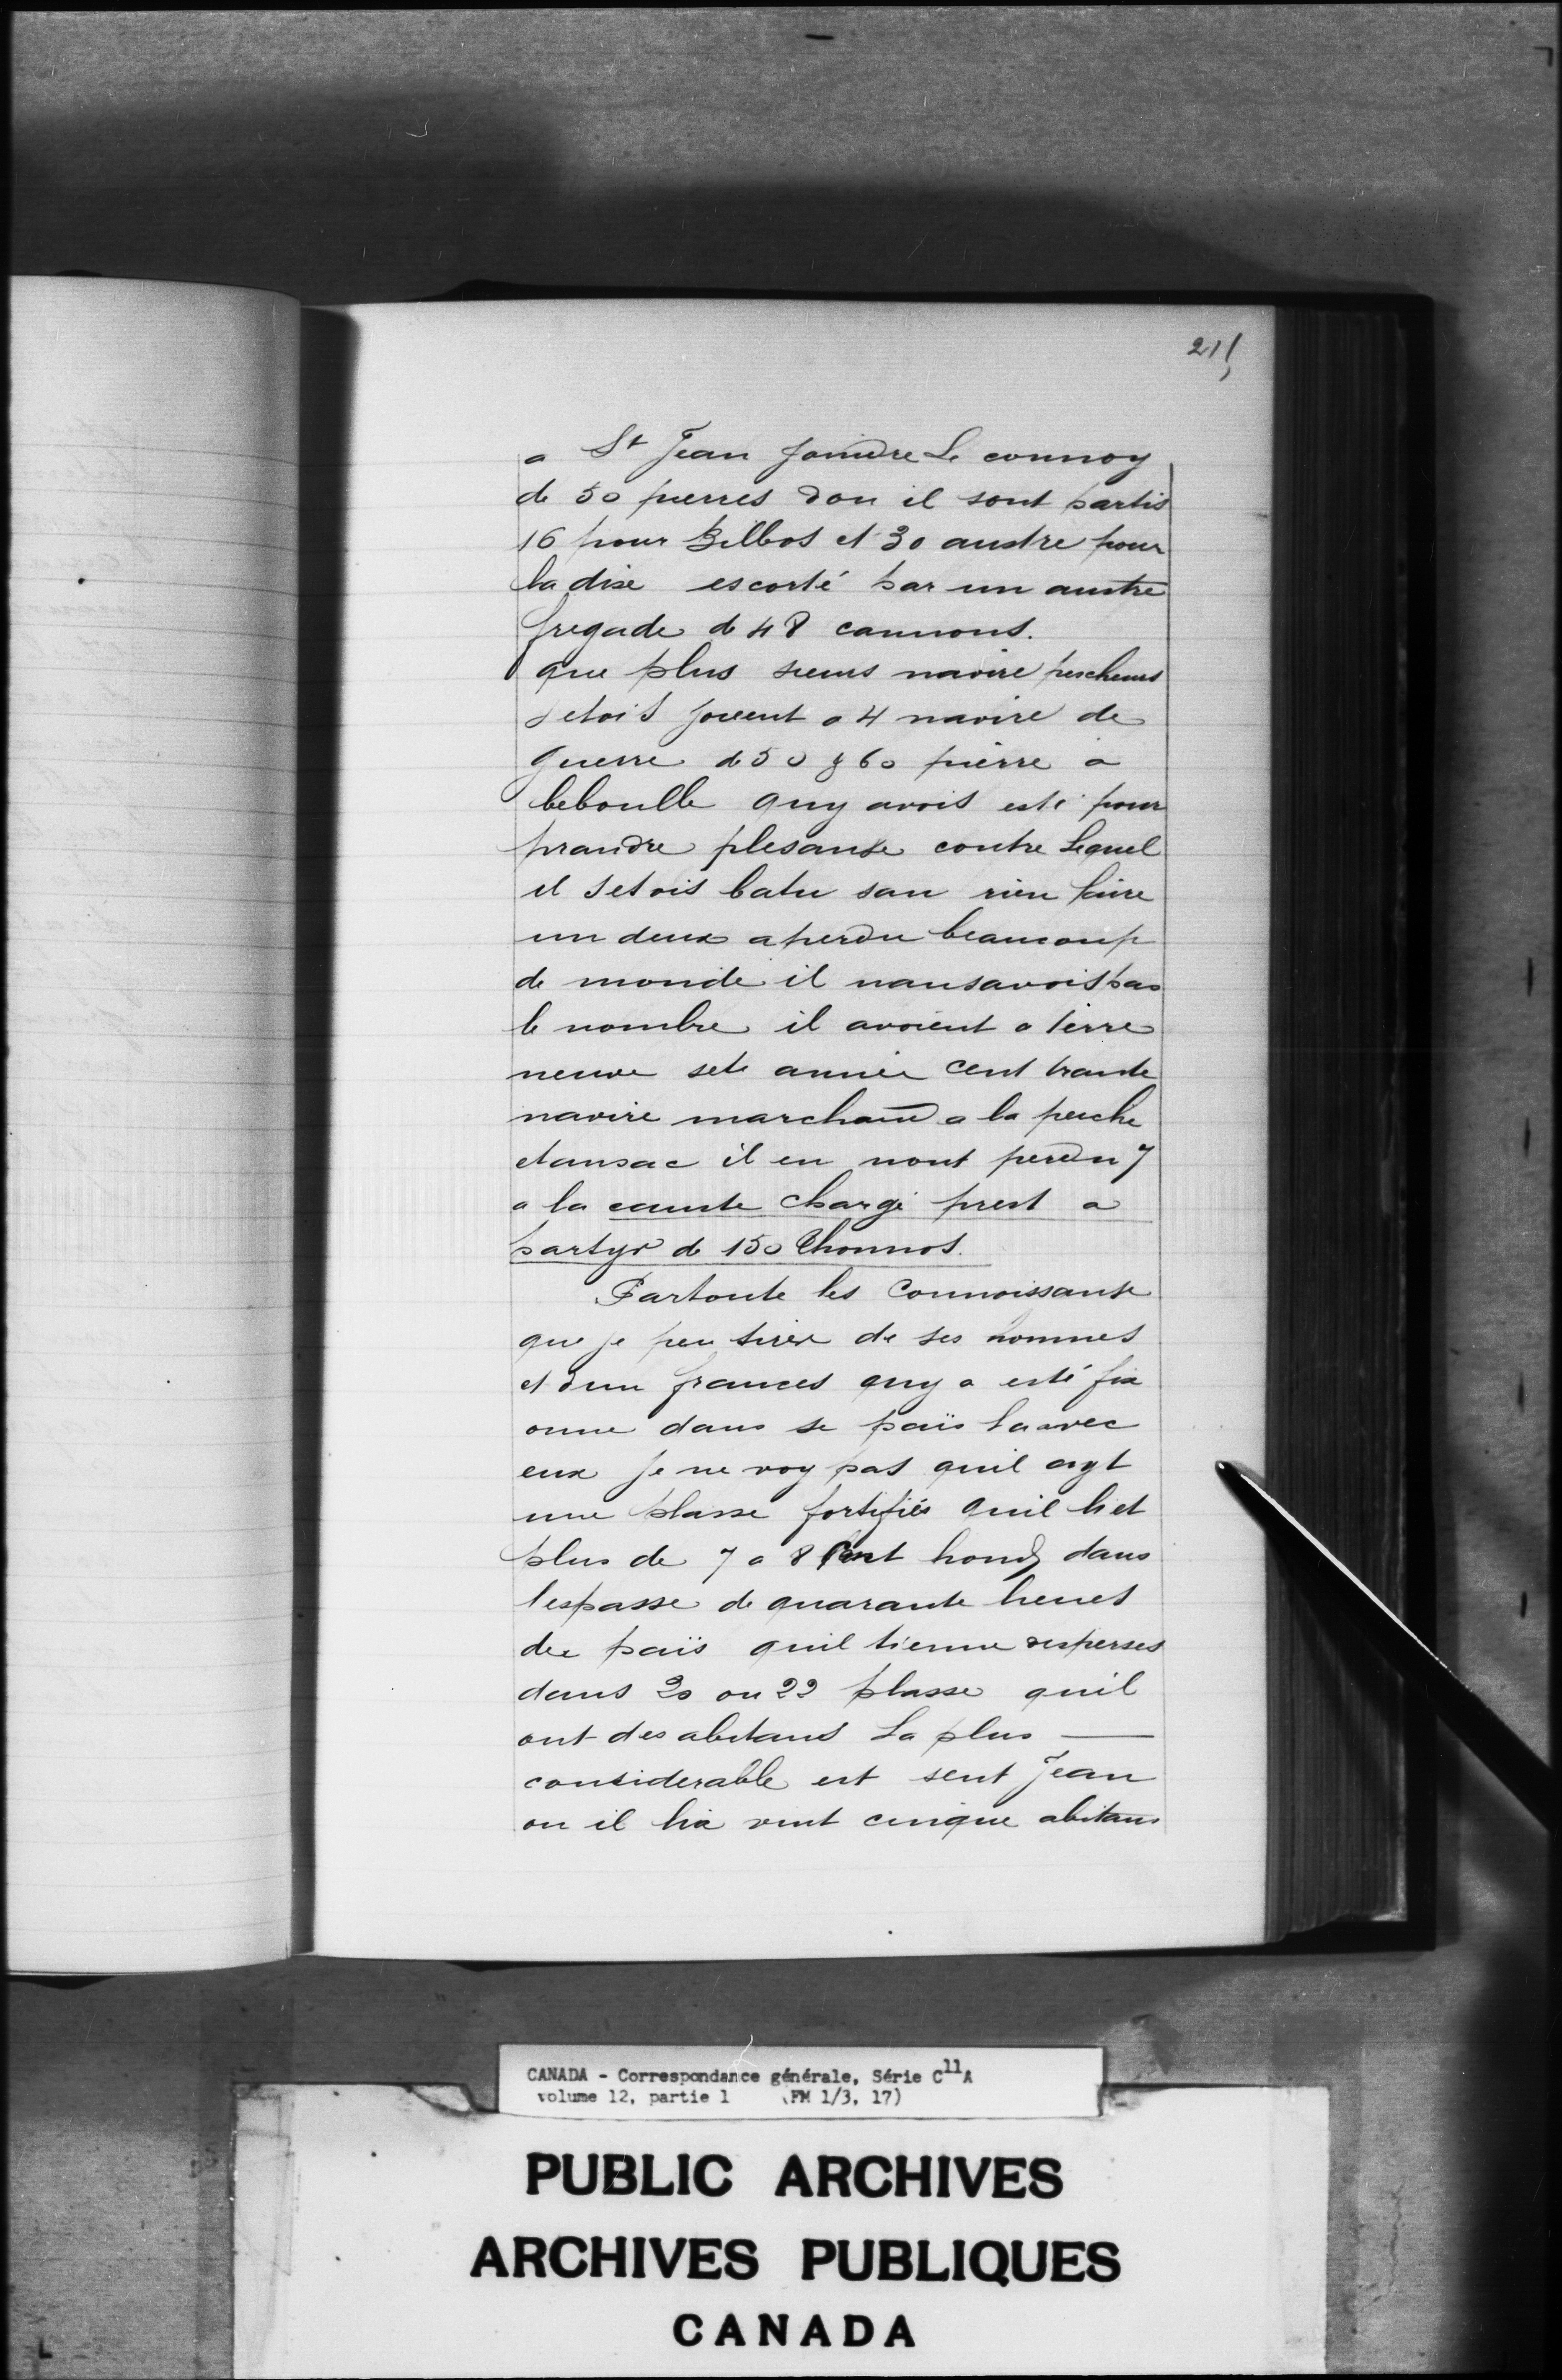 211
a St Jean Joindre Le connoy
de 50 pierres don il sont partis
16 pour Bilbos et 30 austre pour
ladixe escorté par un austre
fregade de 48 cannons.
que plus sieurs navire pescheurs
setois jouent a 4 navire de
guerre de 50 & 60 pierre a
beboulle quy avois esté pour
prandre plesanse contre Lequel
il setois batu san rien faire
un deux a perdu beaucoup
de monde il nansavois pas
le nombre il avoient a terre
neuve sete année cent trante
navire marchand a la pesche
etansac il en nont perdu 7
a la caunte chargé prest a
partyr de 150 thonnos.
Partoute les Connoissanse
que je peu tirer de ses hommes
et dun frances quy a esté fix
onne dans se païs la avec
eux Je ne voy pas quil ayt
une plasse fortifiée quil liet
plus de 7 a 8 cent hom̃ dans
lespasse de quarante lieues
dee païs quil tienne disperses
dans 20 ou 22 plasse quil
ont des abitans La plus —
considerable est sent Jean
ou il lia vint cinque abitans
CANADA - Correspondance générale, Série C11A
volume 12, partie 1 (FM 1/3, 17)
PUBLIC ARCHIVES
ARCHIVES PUBLIQUES
CANADA